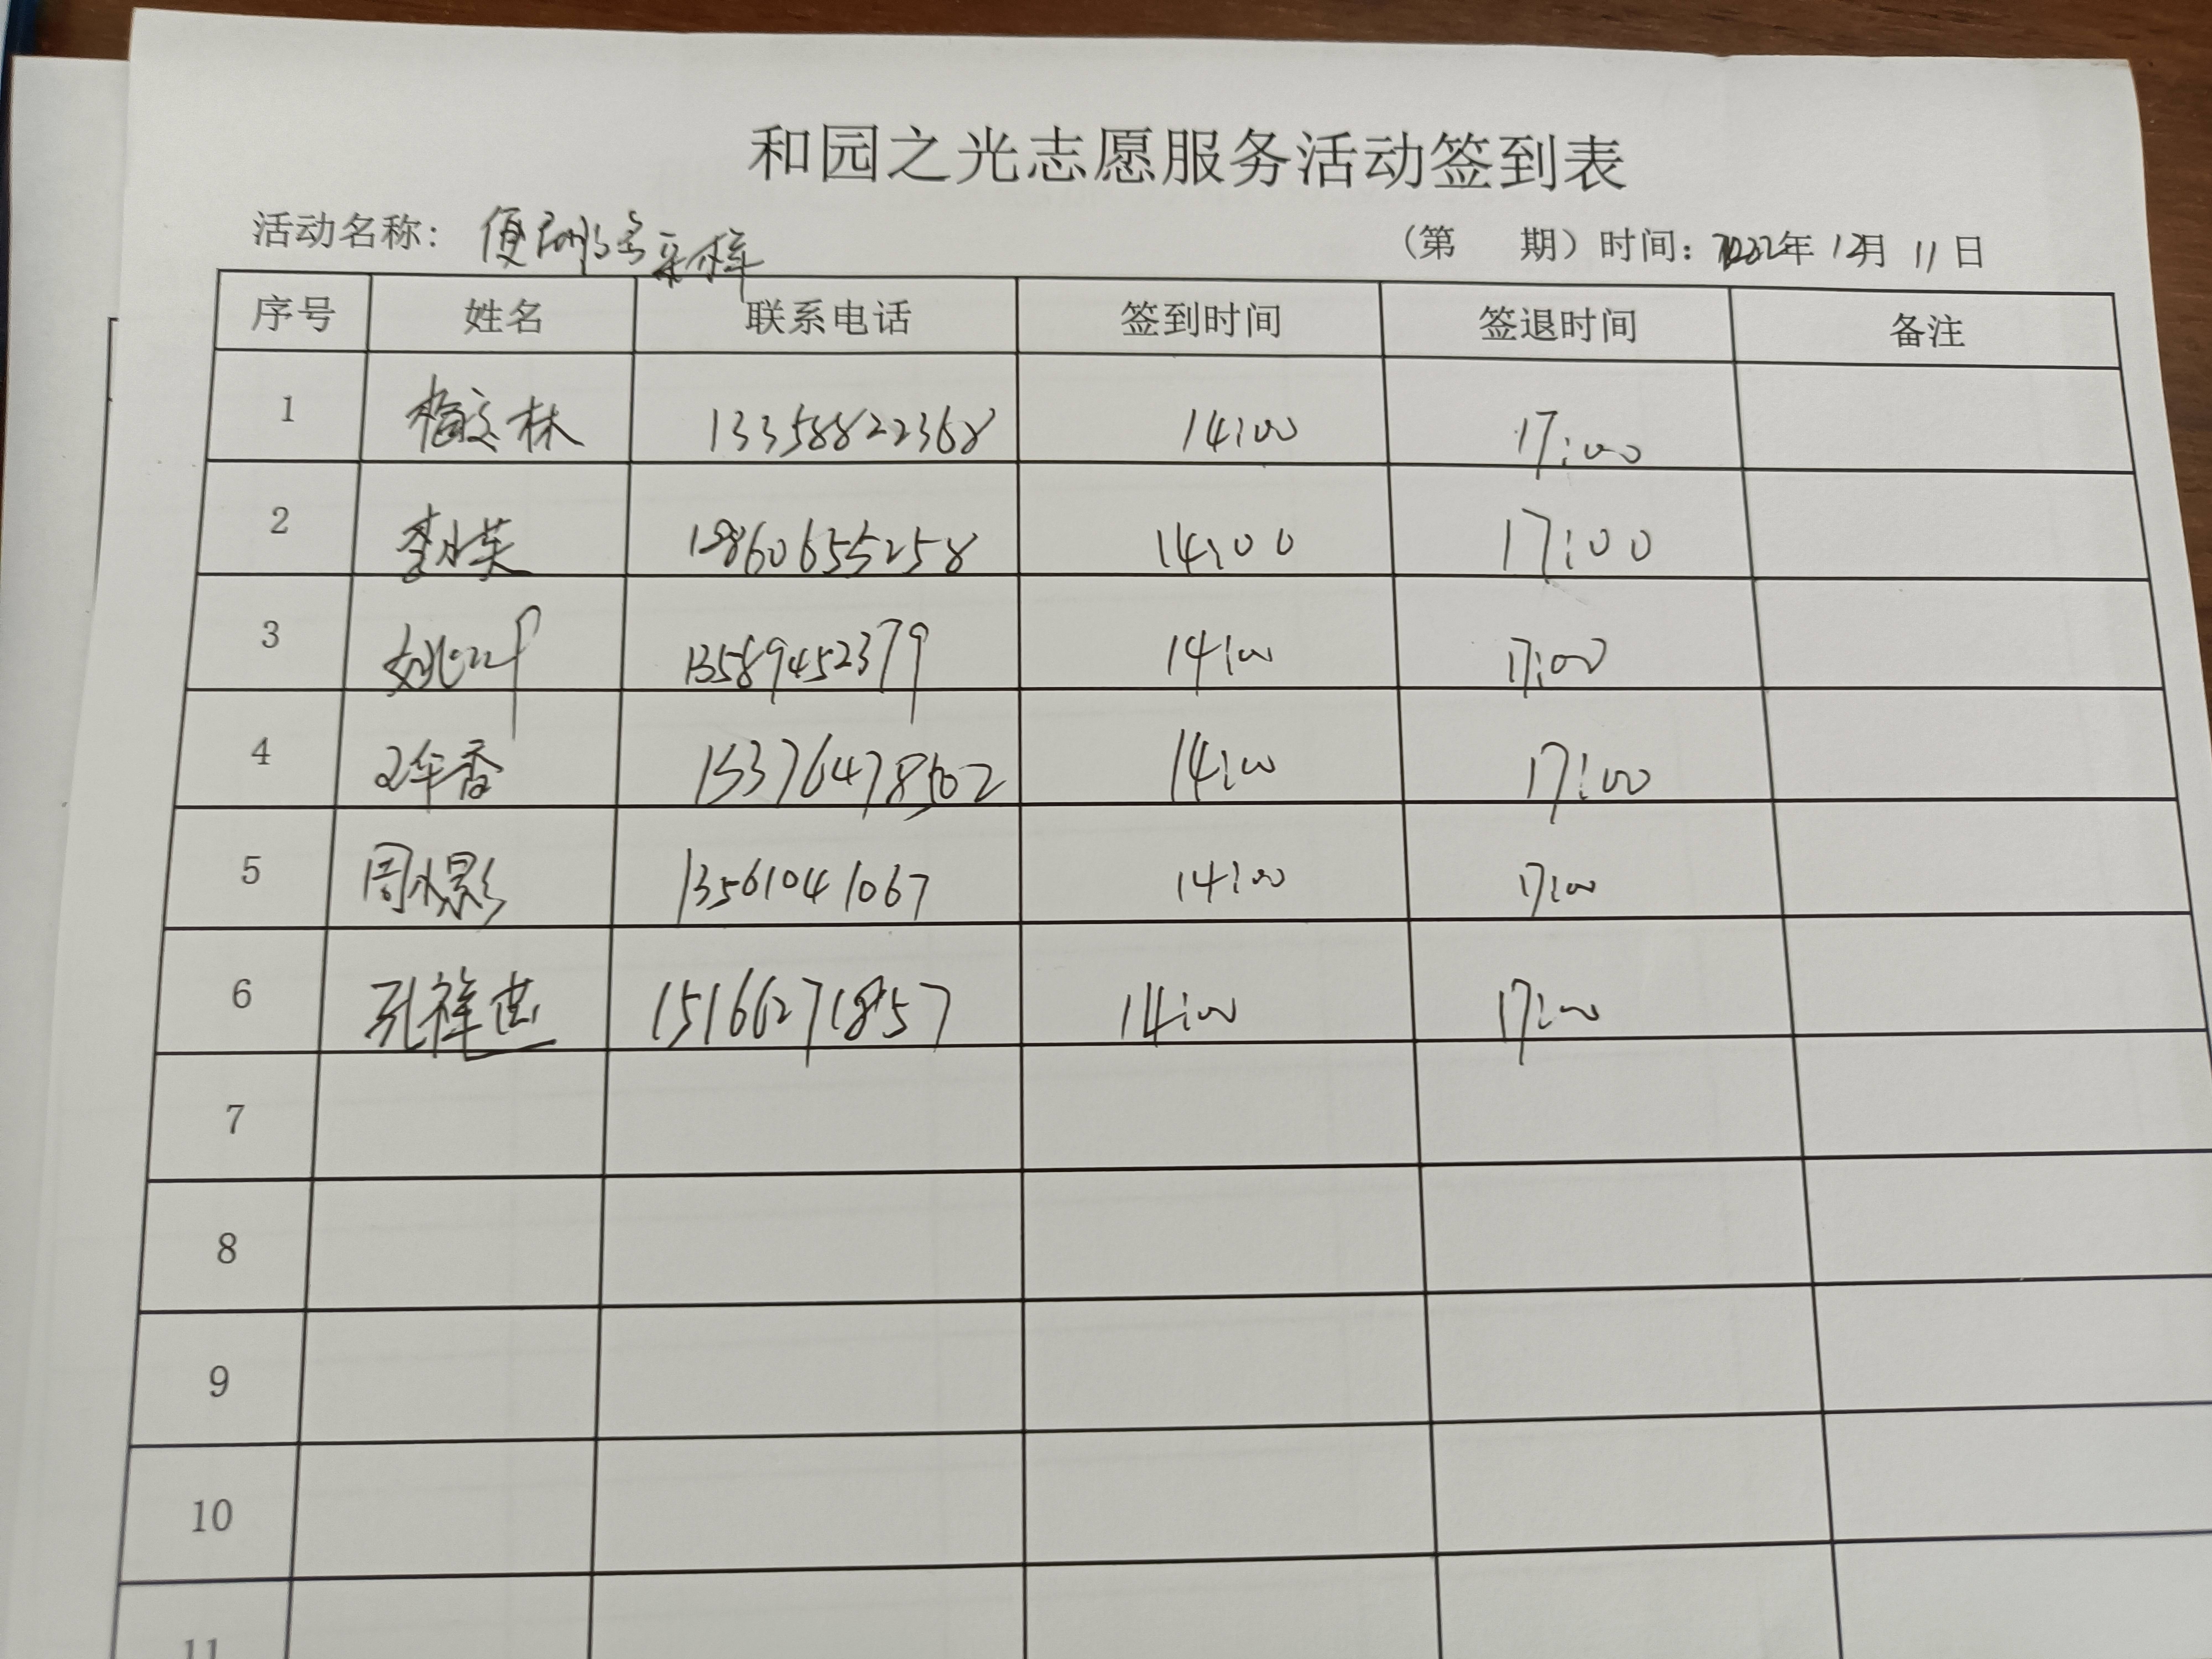 和园之光志愿服务活动签到表
活动名称: 便民服务采样 (第 期) 时间: 2022年 12月 11日
序号 姓名 联系电话 签到时间 签退时间 备注
1 梅文林 13358822368 14:00 17:00
2 14:00 17:00
3 13589452379 14:00 17:00
4 14:00 17:00
5 周小影 13561041067 14:00 17:00
6 孔祥 15166271857 14:00 17:00
7
8
9
10
11